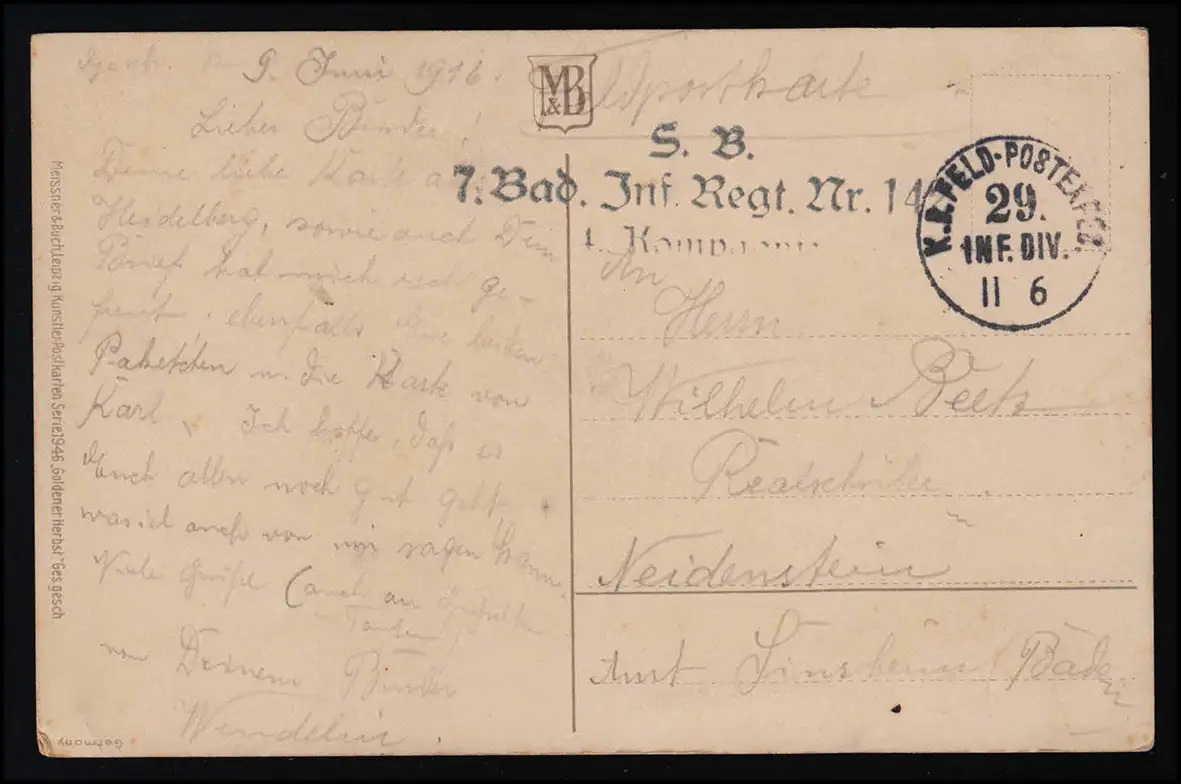 9. Juni 1916.
Lieber Bruder!
Deine liebe Karte a
Heidelberg, sowie auch Dein
Brief hat mich sehr ge-
freut, ebenfalls die beiden
Paketchen u. die Karte von
Karl. Ich hoffe, daß es
Euch allen noch gut geht
was ich auch von mir sagen kann.
Viele Grüße (auch an
Tanten)
von Deinem Bruder
Wendelin.
M&B
Feldpostkarte
S. B.
7. Bad. Inf. Regt. Nr. 14
Kompagnie
K.D. FELD-POSTEXPED.
29.
INF. DIV.
11 6
An
Herrn
Wilhelm
Realschüler
Neidenstein
Amt Sinsheim Baden
Meissner & Buch, Leipzig Künstler-Postkarten Serie 1946 „Goldener Herbst" Ges. gesch
Germany